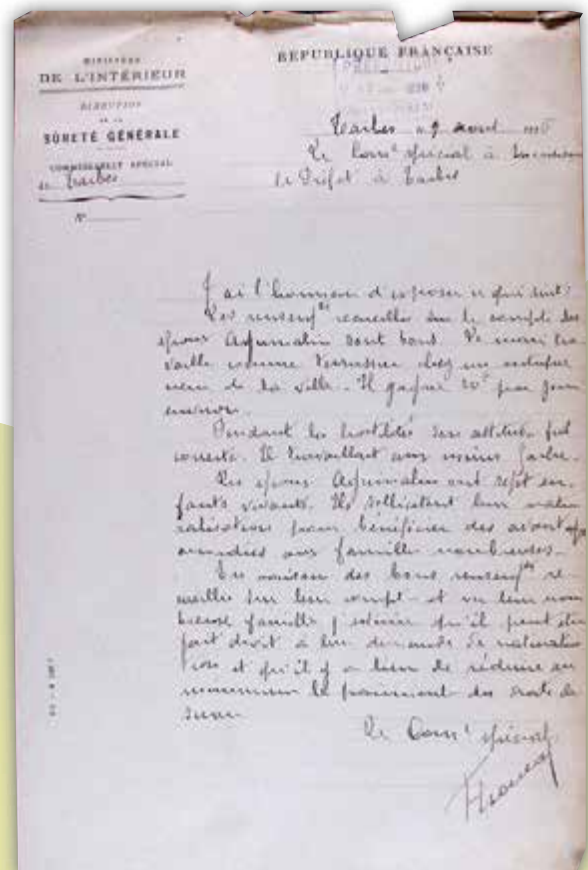 MINISTÈRE
DE L'INTÉRIEUR
DIRECTION
DE LA
SÛRETÉ GÉNÉRALE
COMMISSARIAT SPÉCIAL
de Tarbes
N°
RÉPUBLIQUE FRANÇAISE
Tarbes le 9 avril
Le Com^t spécial à Monsieur
le Préfet à Tarbes
J'ai l'honneur d'exposer ce qui suit:
Les renseig^ts recueillis sur le compte des
époux sont bons. Le mari tra
vaille comme terrassier chez un entrepre
neur de la ville. Il gagne 20^f par jour
environ.
Pendant les hostilités son attitude fut
correcte. Il travaillait aux usines
Les époux ont sept en
fants vivants. Ils sollicitent leur natu
ralisation pour bénéficier des avantages
accordés aux familles nombreuses.
En raison des bons renseig^ts re
cueillis sur leur compte et vu leur nom
breuse famille j'estime qu'il peut être
fait droit à leur demande de naturalisa
tion et qu'il y a lieu de réduire au
minimum le paiement des droits de
sceau
Le Com^t spécial